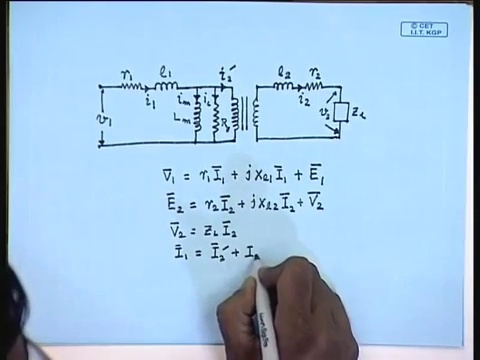 © CET
I.I.T. KGP
r₁ l₁ i₂′ l₂ r₂
i₁ iₘ i_c i₂
v₁ Lₘ R_c v₂ Z_L
V̄₁ = r₁Ī₁ + jx_l₁Ī₁ + Ē₁
Ē₂ = r₂Ī₂ + jx_l₂Ī₂ + V̄₂
V̄₂ = Z_L Ī₂
Ī₁ = Ī₂′ + I